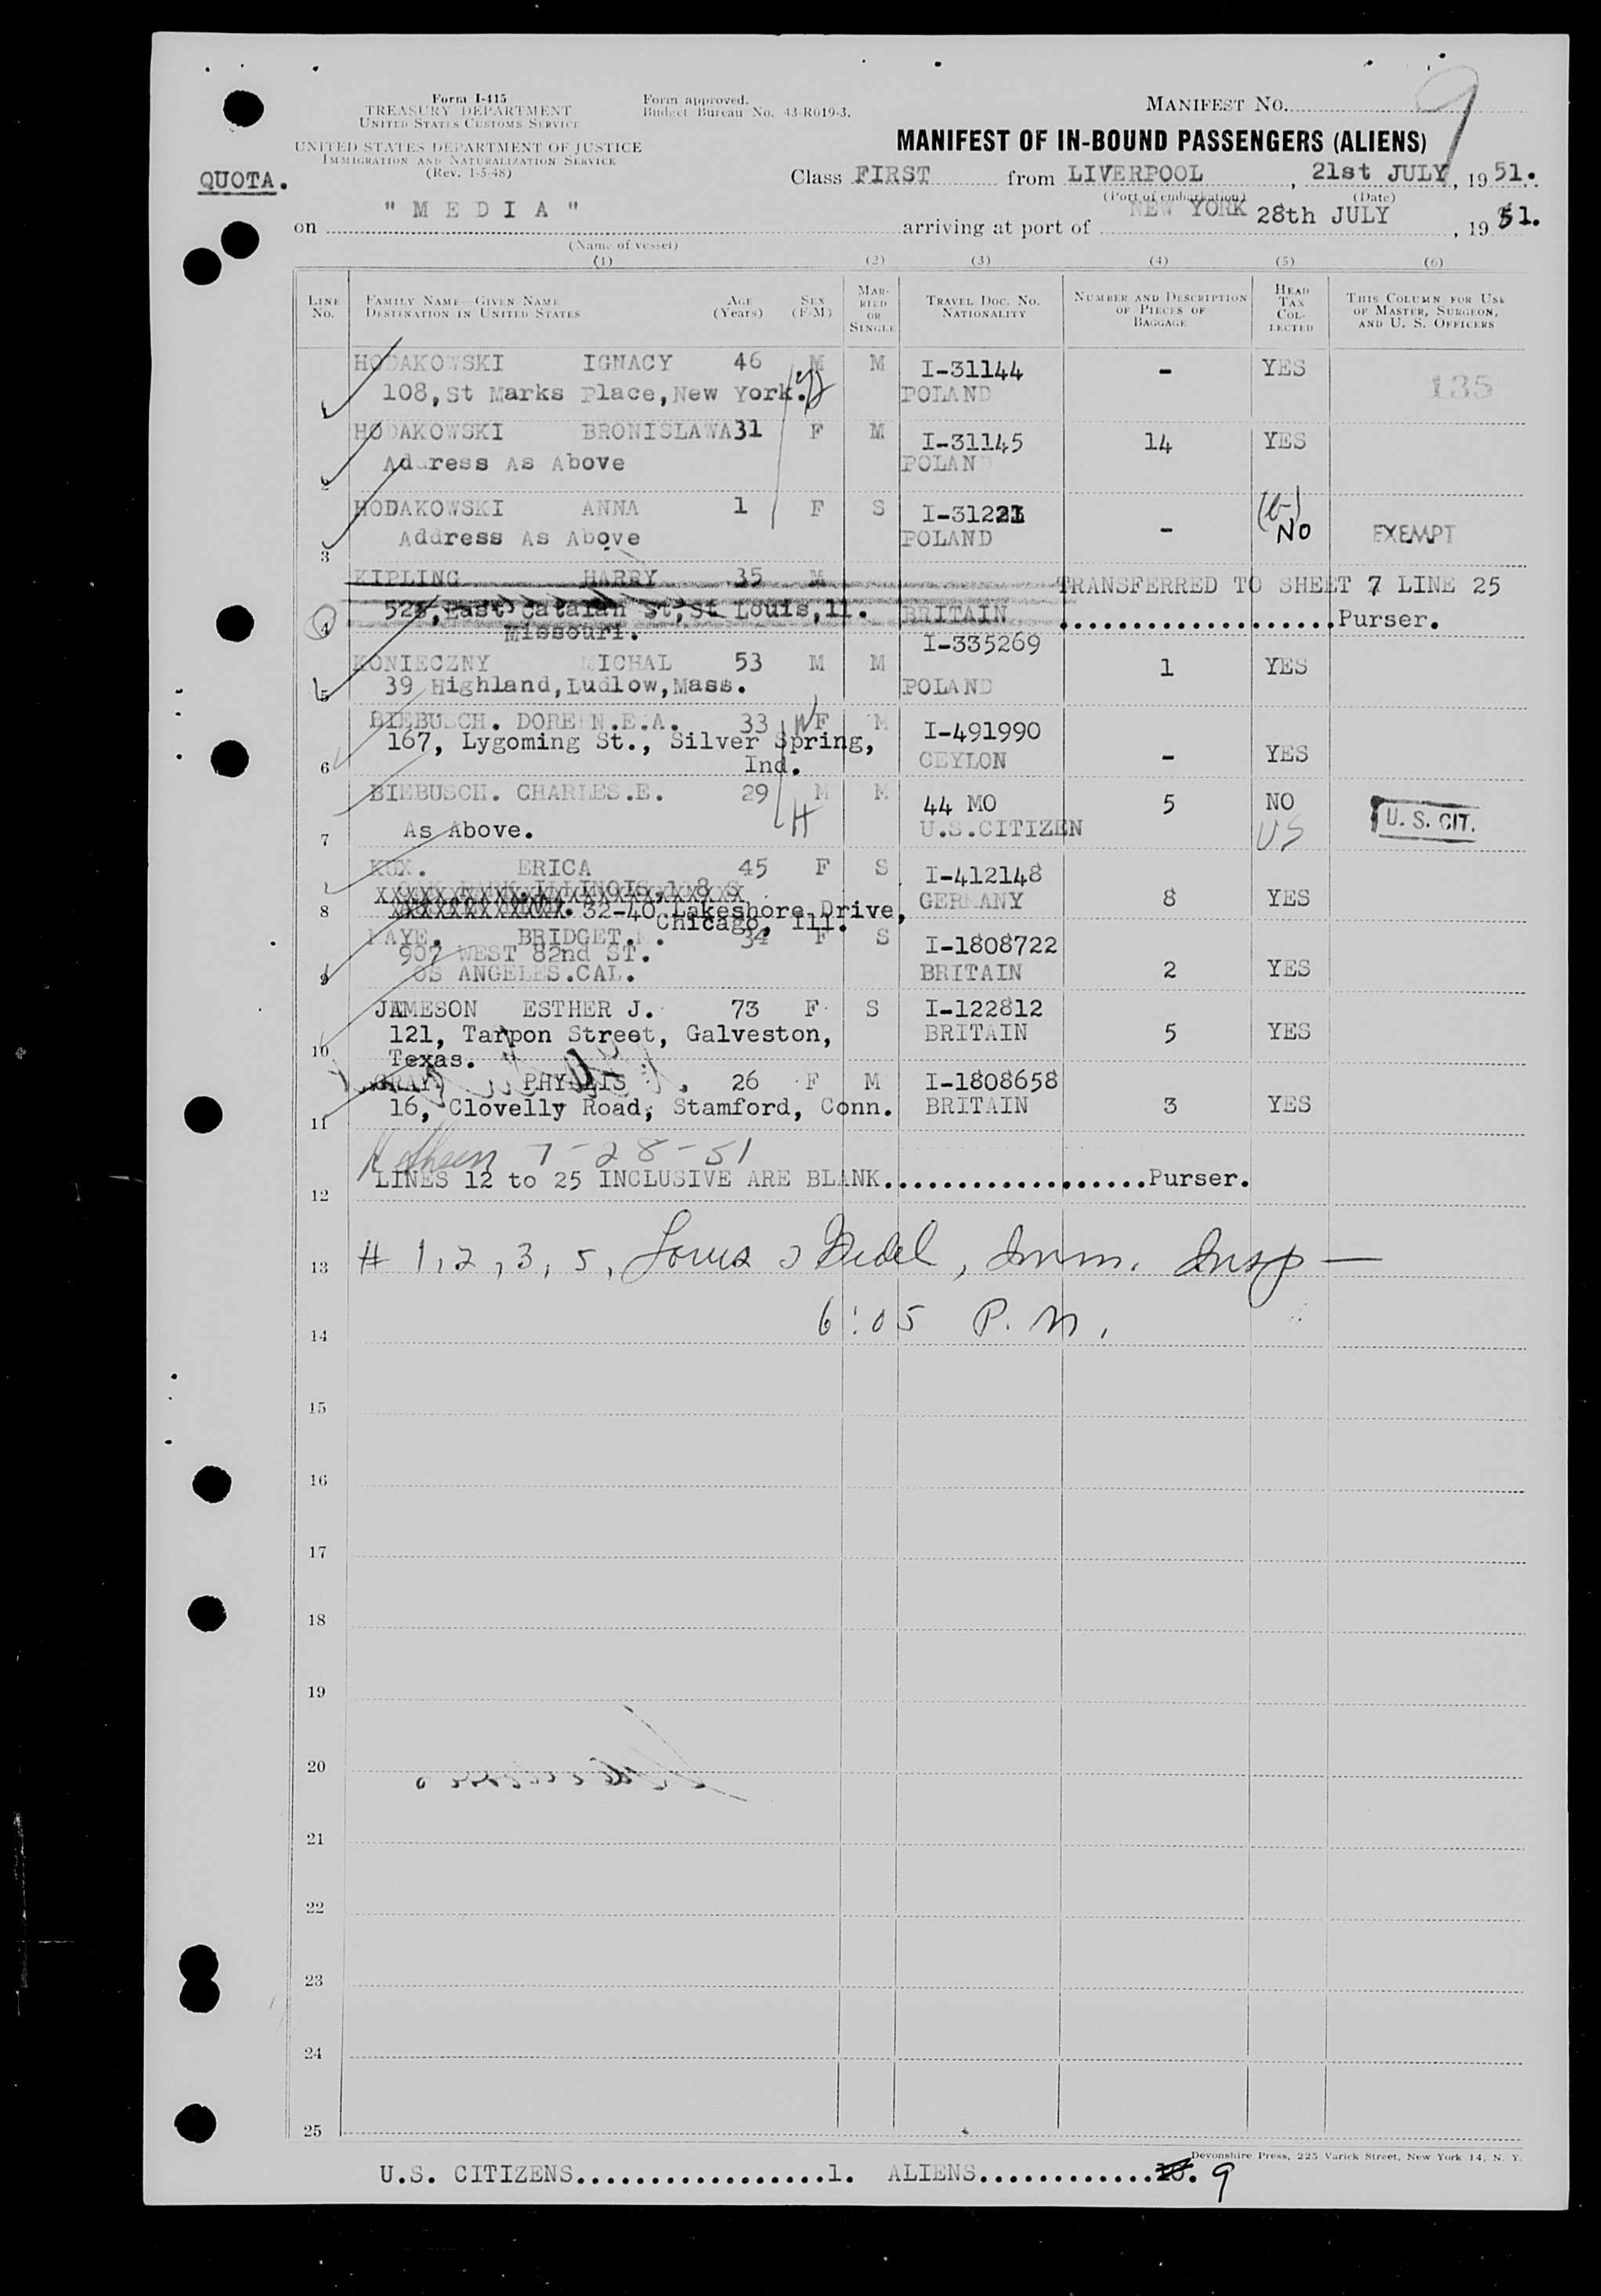 Form I-415
TREASURY DEPARTMENT
UNITED STATES CUSTOMS SERVICE
UNITED STATES DEPARTMENT OF JUSTICE
IMMIGRATION AND NATURALIZATION SERVICE
(Rev. 1-5-48)
Form approved.
Budget Bureau No. 43-R019-3.
MANIFEST NO. 9
MANIFEST OF IN-BOUND PASSENGERS (ALIENS)
QUOTA.
Class FIRST from LIVERPOOL, 21st JULY, 1951.
(Port of embarkation) (Date)
on "MEDIA" arriving at port of NEW YORK 28th JULY, 1951.
(Name of vessel)
(1) (2) (3) (4) (5) (6)
LINE NO. FAMILY NAME—GIVEN NAME DESTINATION IN UNITED STATES AGE (Years) SEX (F-M) MARRIED OR SINGLE TRAVEL DOC. NO. NATIONALITY NUMBER AND DESCRIPTION OF PIECES OF BAGGAGE HEAD TAX COLLECTED THIS COLUMN FOR USE OF MASTER, SURGEON, AND U. S. OFFICERS
HODAKOWSKI IGNACY 46 M M I-31144 - YES
1 108, St Marks Place, New York. POLAND 135
HODAKOWSKI BRONISLAWA 31 F M I-31145 14 YES
2 Address As Above POLAND
HODAKOWSKI ANNA 1 F S I-31221 - NO EXEMPT
3 Address As Above POLAND
KIPLING HARRY 35 M TRANSFERRED TO SHEET 7 LINE 25
4 525, East Catalan St, St Louis, 11. BRITAIN ....................Purser.
Missouri.
KONIECZNY MICHAL 53 M M I-335269 1 YES
5 39 Highland, Ludlow, Mass. POLAND
BIEBUSCH. DOREEN.E.A. 33 F M I-491990 - YES
167, Lygoming St., Silver Spring,
6 Ind. CEYLON
BIEBUSCH. CHARLES.E. 29 M M 44 MO 5 NO
7 As Above. U.S.CITIZEN US U. S. CIT.
KUX. ERICA 45 F S I-412148 8 YES
8 32-40 Lakeshore Drive, GERMANY
Chicago, Ill.
BRIDGET. 34 F S I-1808722 2 YES
907 WEST 82nd ST.
9 OS ANGELES.CAL. BRITAIN
JAMESON ESTHER J. 73 F S I-122812 5 YES
121, Tarpon Street, Galveston, BRITAIN
10 Texas.
GRAY PHYLLIS 26 F M I-1808658 3 YES
11 16, Clovelly Road, Stamford, Conn. BRITAIN
7-28-51
12 LINES 12 to 25 INCLUSIVE ARE BLANK....................Purser.
13 # 1, 2, 3, 5, Imm. Insp —
14 6:05 P.M.
15
16
17
18
19
20
21
22
23
24
25
Devonshire Press, 225 Varick Street, New York 14, N. Y.
U.S. CITIZENS....................1. ALIENS..............10. 9